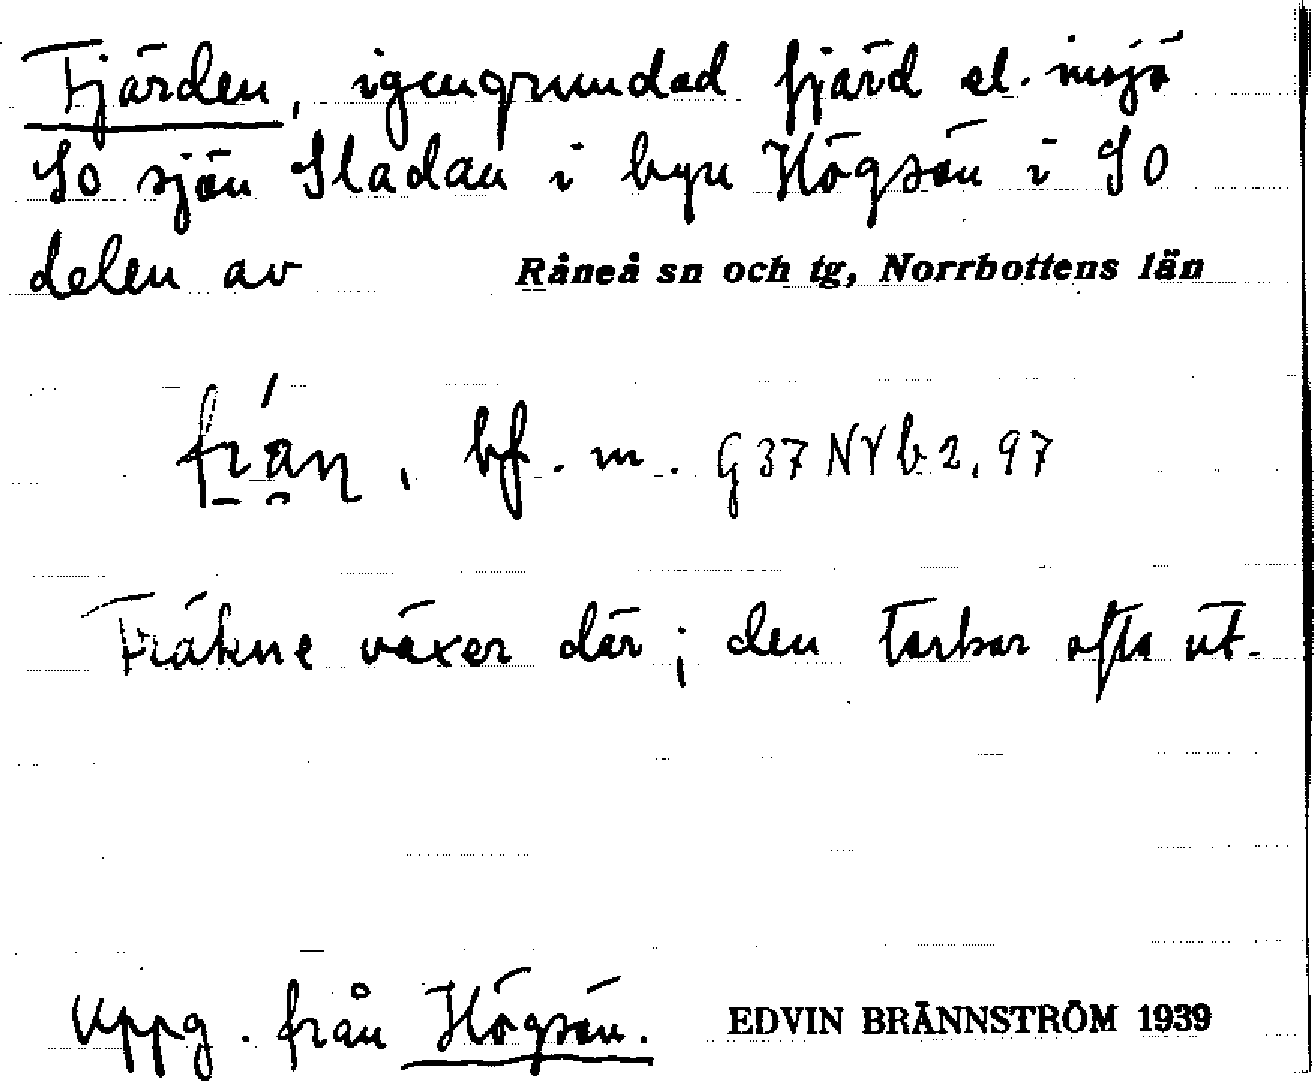 Fjärden, igengrundad fjärd el. insjö
SO sjön Sladan i byn Högsön i SO
delen av Råneå sn och tg, Norrbottens län
bf. m. G37 NYb2, 97
Fräkne växer där; den torkar ofta ut.
Uppg. från Högsön. EDVIN BRÄNNSTRÖM 1939